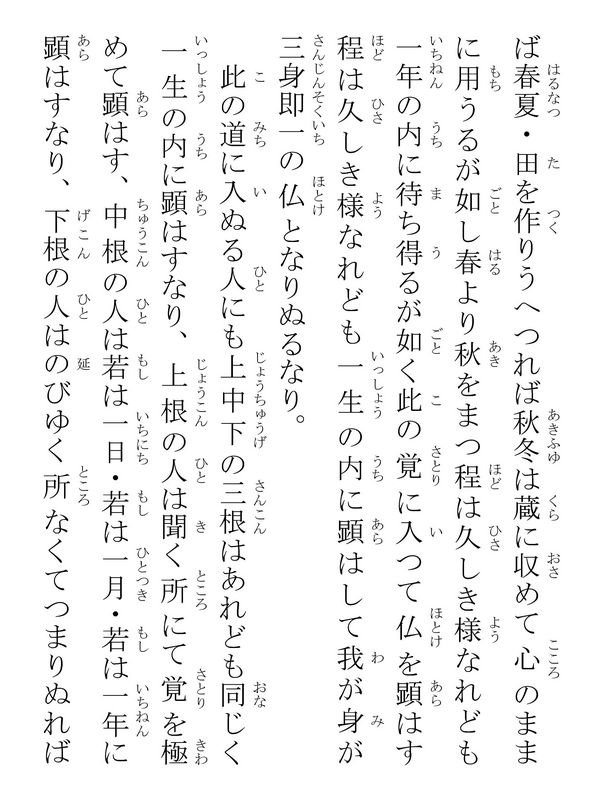 ば春夏・田を作りうへつれば秋冬は蔵に収めて心のまま
に用うるが如し春より秋をまつ程は久しき様なれども
一年の内に待ち得るが如く此の覚に入つて仏を顕はす
程は久しき様なれども一生の内に顕はして我が身が
三身即一の仏となりぬるなり。
此の道に入ぬる人にも上中下の三根はあれども同じく
一生の内に顕はすなり、上根の人は聞く所にて覚を極
めて顕はす、中根の人は若は一日・若は一月・若は一年に
顕はすなり、下根の人はのびゆく所なくてつまりぬれば